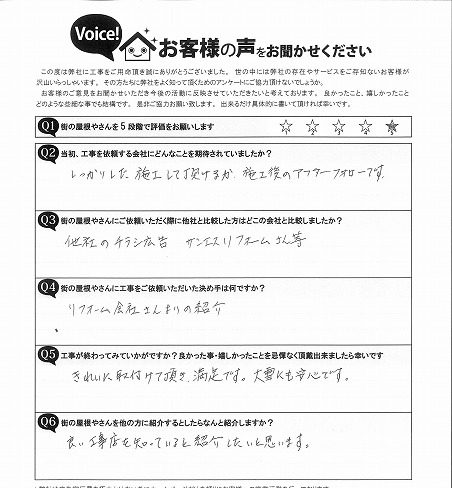 Voice!
お客様の声をお聞かせください
この度は弊社に工事をご用命頂き誠にありがとうございました。 世の中には弊社の存在やサービスをご存知ないお客様が
沢山いらっしゃいます。 その方たちに弊社をよく知って頂くためのアンケートにご協力頂けないでしょうか。
お客様のご意見をお聞かせいただき今後の活動に反映させていただきたいと考えております。 良かったこと、嬉しかったこと
どのような些細な事でも結構です。 是非ご協力お願い致します。 出来るだけ具体的に書いて頂ければ幸いです。
Q1 街の屋根やさんを5段階で評価をお願いします
1 2 3 4 5
Q2 当初、工事を依頼する会社にどんなことを期待されていましたか?
しっかりした施工して頂けるか、施工後のアフターフォローです。
Q3 街の屋根やさんにご依頼いただく際に他社と比較した方はどこの会社と比較しましたか?
他社のチラシ広告 サンエスリフォームさん等
Q4 街の屋根やさんに工事をご依頼いただいた決め手は何ですか?
リフォーム会社さんよりの紹介
Q5 工事が終わってみていかがですか?良かった事・嬉しかったことを忌憚なく頂戴出来ましたら幸いです
きれいに取付けて頂き、満足です。大雪にも安心です。
Q6 街の屋根やさんを他の方に紹介するとしたらなんと紹介しますか?
良い工事店を知っていると紹介したいと思います。